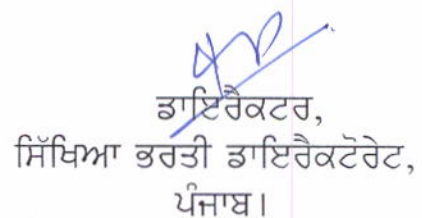 ਡਾਇਰੈਕਟਰ,
ਸਿੱਖਿਆ ਭਰਤੀ ਡਾਇਰੈਕਟੋਰੇਟ,
ਪੰਜਾਬ।